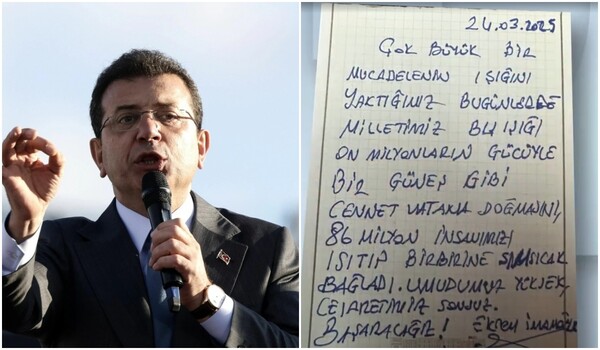 24.03.2025
ÇOK BÜYÜK BİR
MÜCADELENİN IŞIĞINI
YAKTIĞIMIZ BUGÜNLERDE
MİLLETİMİZ BU IŞIĞI
ON MİLYONLARIN GÜCÜYLE
BİR GÜNEŞ GİBİ
CENNET VATANA DOĞMASINI,
86 MİLYON İNSANIMIZI
ISITIP BİRBİRİNE SIMSICAK
BAĞLADI. UMUDUMUZ YÜKSEK,
CESARETİMİZ SONSUZ.
BAŞARACAĞIZ! EKREM İMAMOĞLU